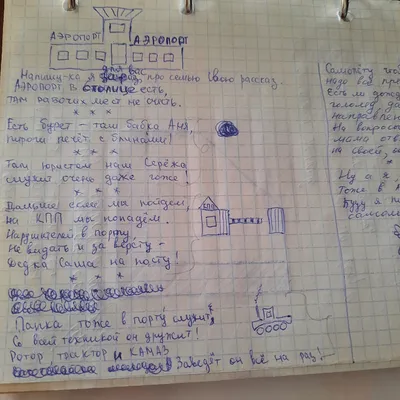 АЭРОПОРТ АЭРОПОРТ
для вас
Напишу-ка я про семью свою рассказ.
АЭРОПОРТ в столице есть,
там рабочих мест не счесть.
* * *
Есть буфет - там бабка Аня,
пироги печёт с блинами!
* * *
Там юристом наш Серёжа
служит очень даже гоже!
* * *
Дальше если мы пойдём,
на КПП мы попадём.
Нарушителей в порту
Не видать и за версту -
Дедка Саша на посту!
КПП
* * *
Папка тоже в порту служит,
Со всей техникой он дружит!
Ротор, трактор и КАМАЗ
Заведёт он всё на раз!
Самолёту
надо всё
Есть ли
направлен
На вопрос
мама
на своей
Ну а я
Тоже в А
Буду я
самолё